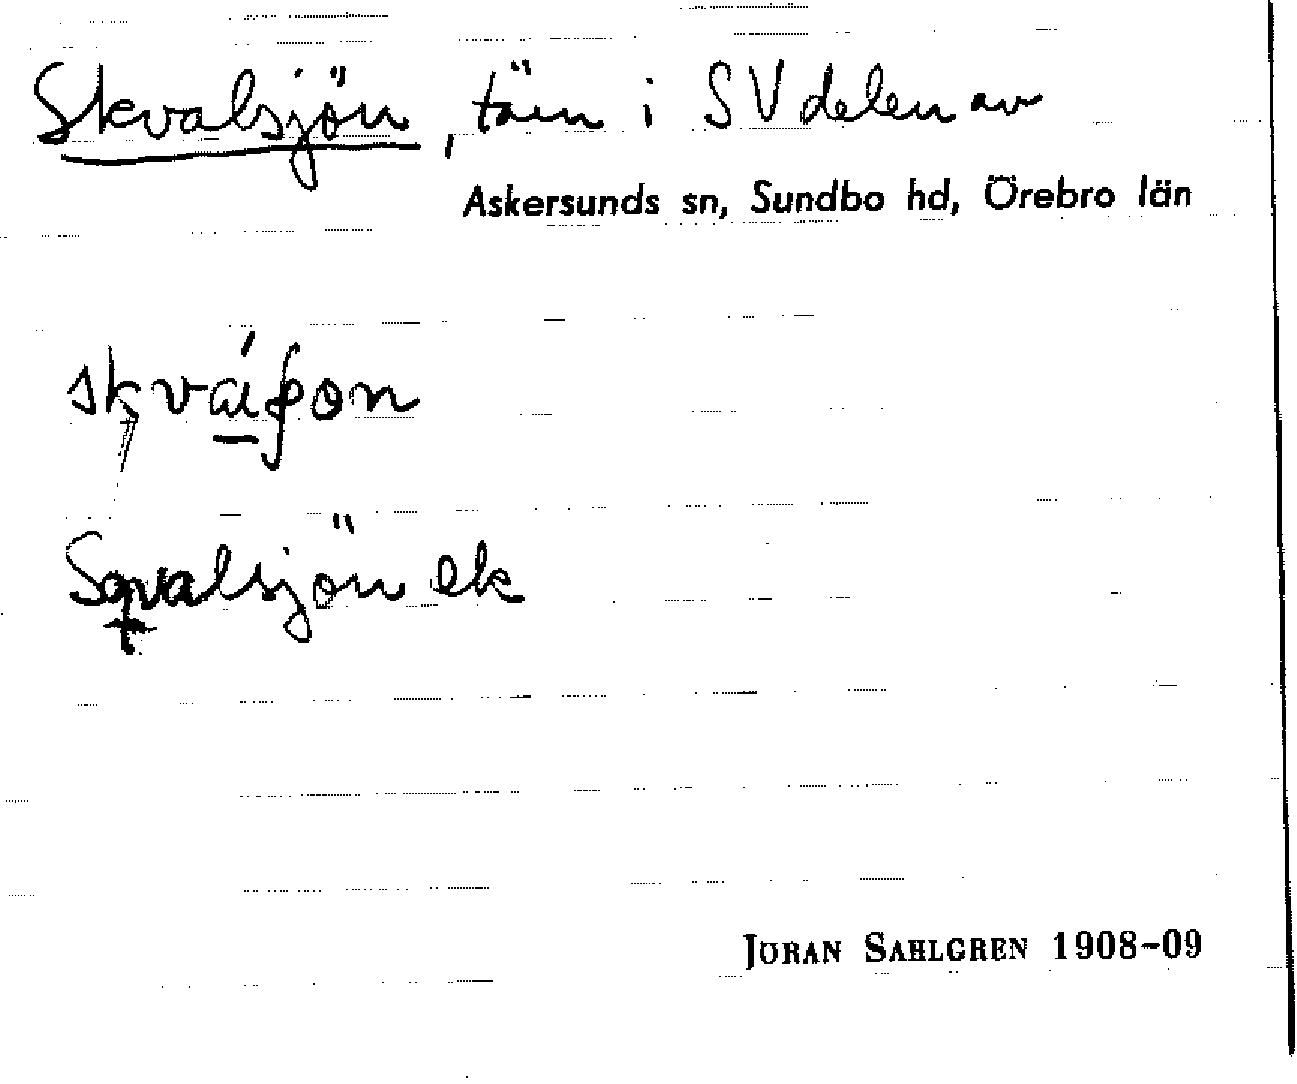 Skvalsjön, tärn i SV delen av
Askersunds sn, Sundbo hd, Örebro län
Sqvalsjön ek
JÖRAN SAHLGREN 1908-09